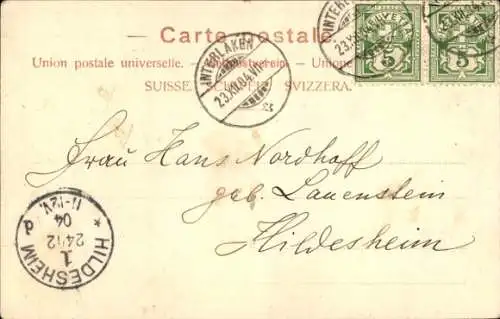 Carte postale.
Union postale universelle. — Weltpostverein. — Unione
SUISSE. SCHWEIZ. SVIZZERA.
INTERLAKEN
23.XII.04.VII
HELVETIA
5
5
Frau Hans Nordhoff
geb. Lauenstein
Hildesheim
HILDESHEIM
1
24/12
04
11-12V.